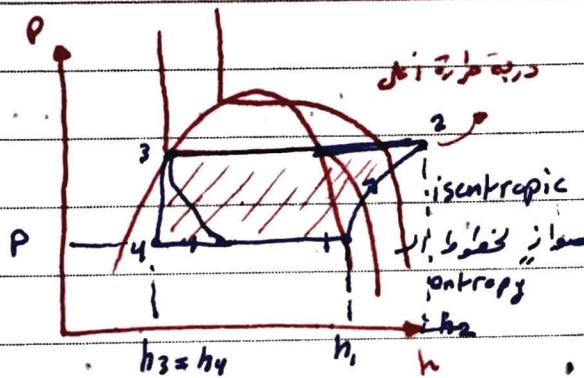 P
درجة حرارة أعلى
2
3
isentropic
P
4
1
موازي لخطوط ال
entropy
h2
h3 = h4
h1
h